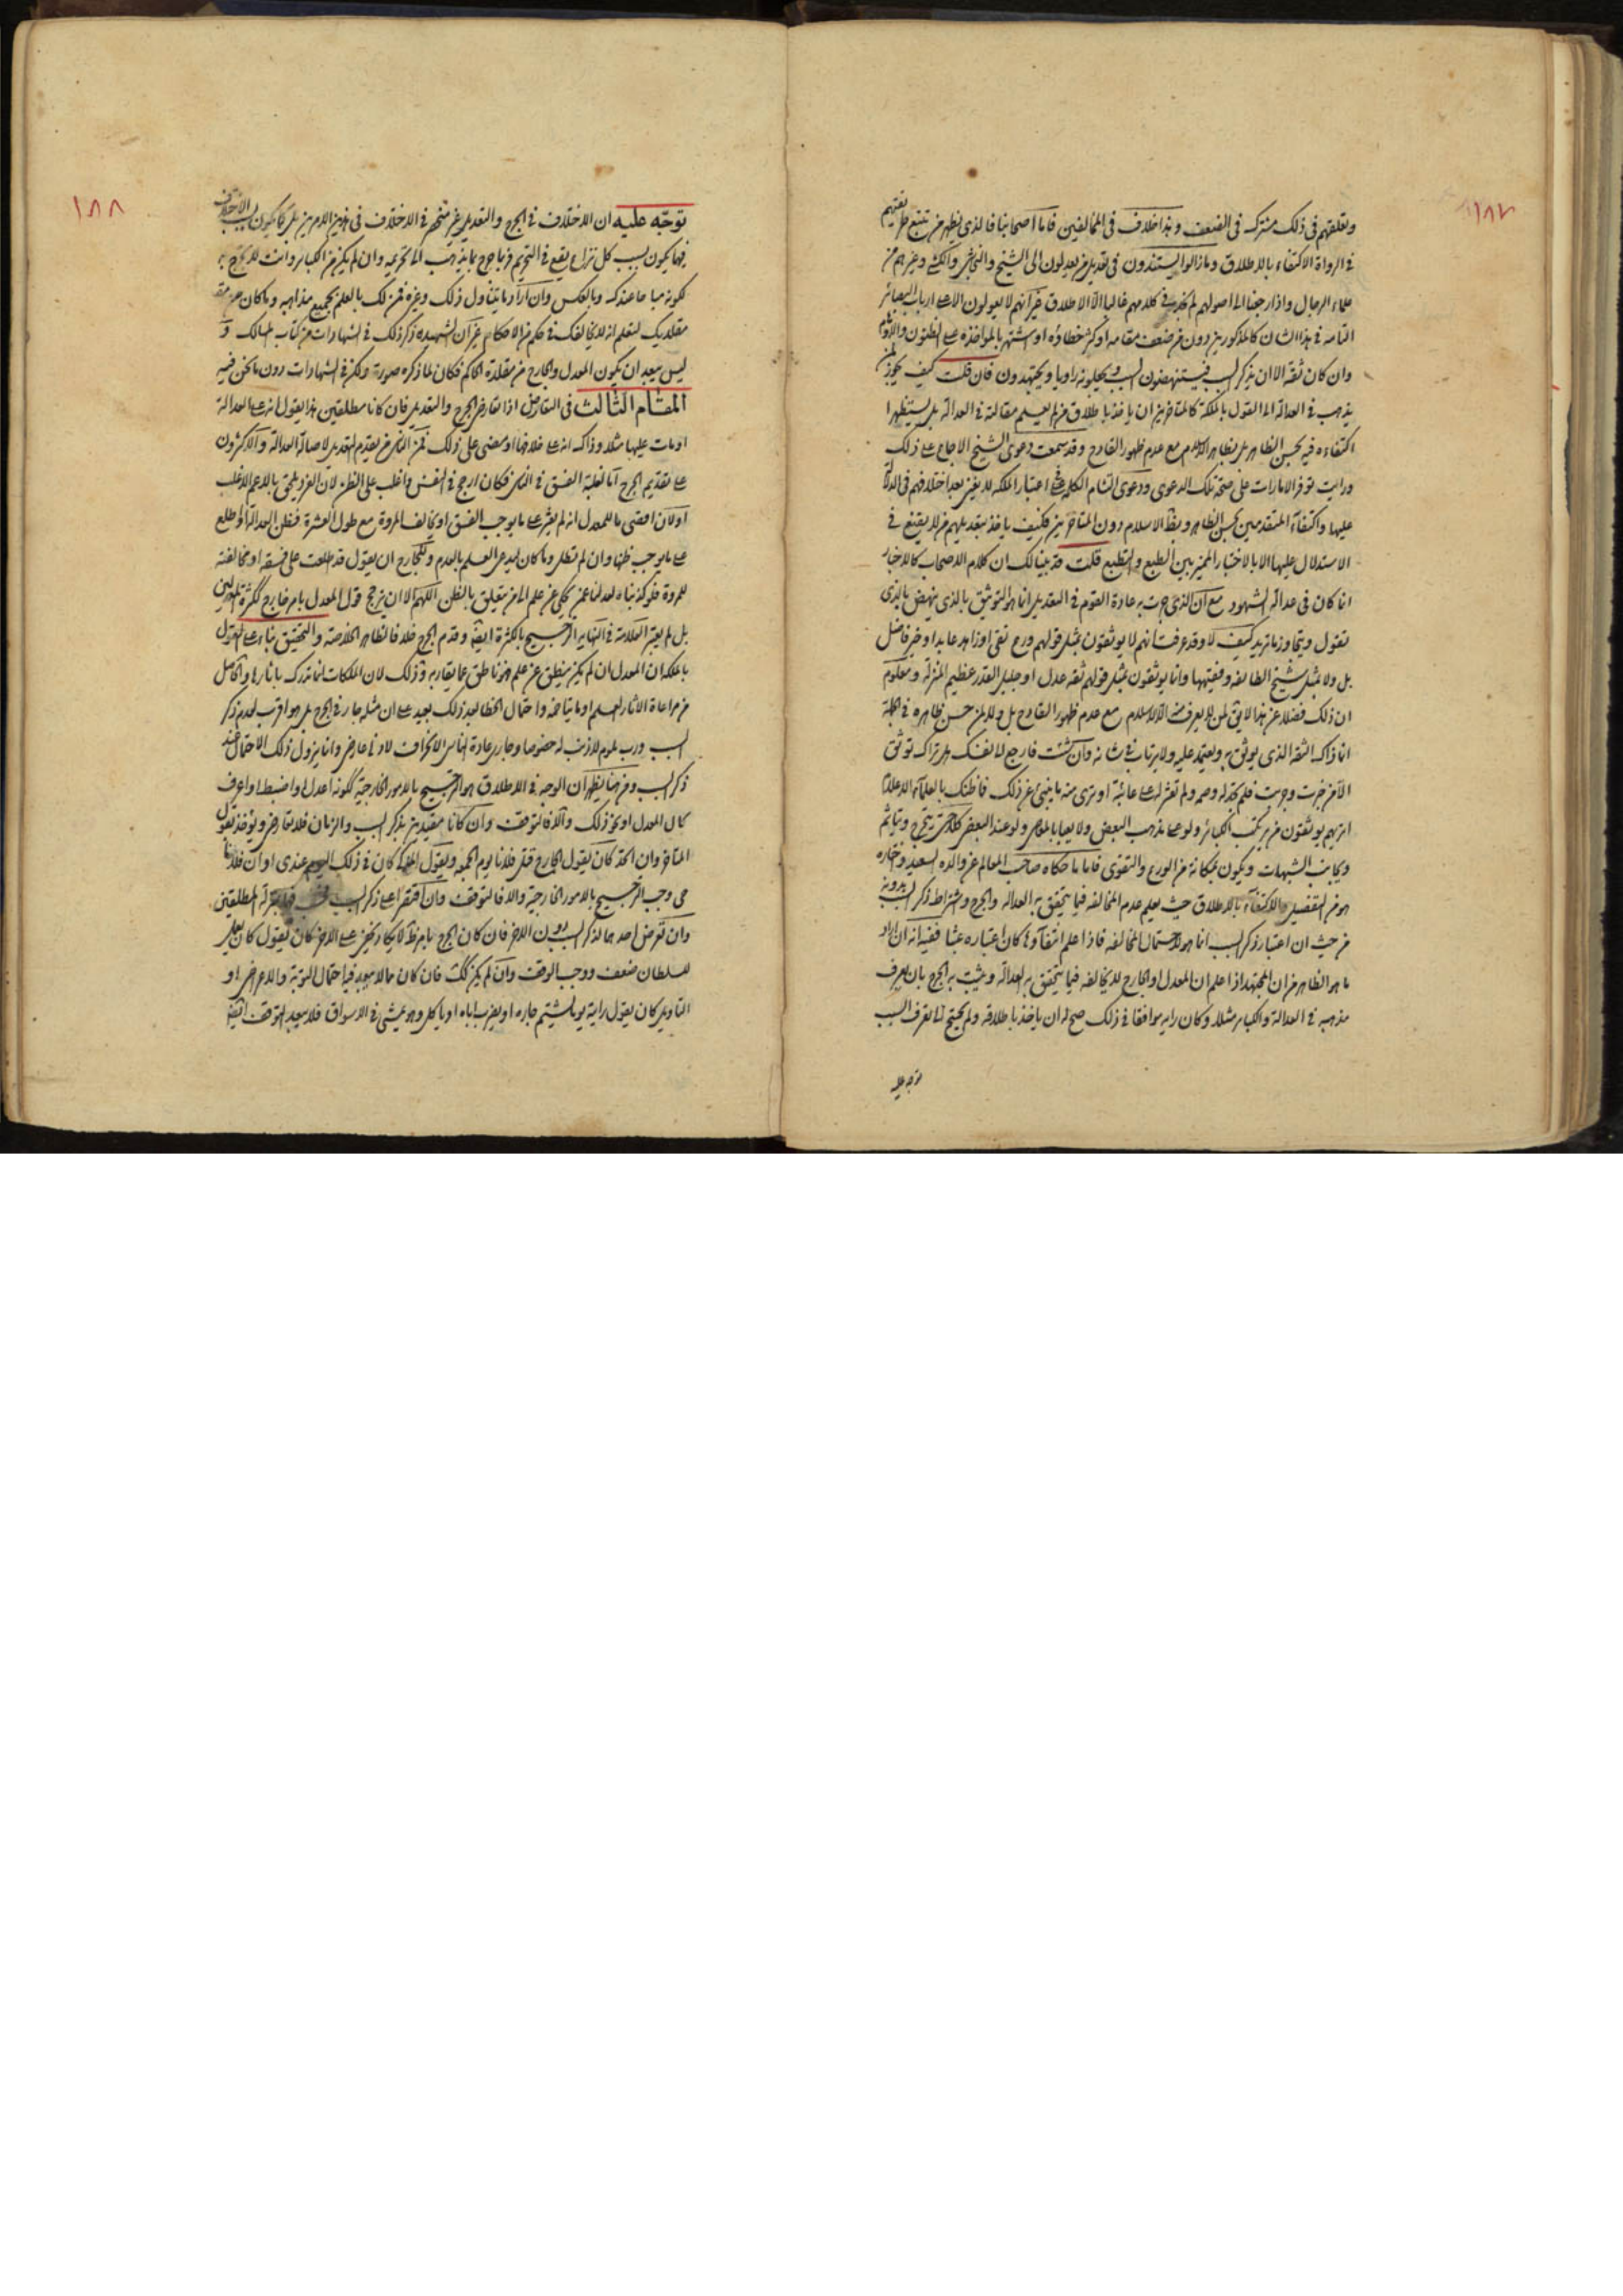 ١٨٧
وتعلقهم في ذلك مشترك في الضعف وهذا خلاف في المخالفين فاما اصحابنا فالذي يظهر من تتبع طريقتهم
في الرواة الاكتفاء بالاطلاق وما زالوا يستندون في تعديل من يعدلون الى الشيخ والنجاشي والكشي وغيرهم من
علماء الرجال واذا رجعنا الى اصولهم لم نجد في كلامهم غالبا الا الاطلاق غير انهم لا يعولون الا على ارباب البصائر
التامة في هذا الشان كالمذكورين دون من ضعف مقامه او كثر خطاؤه او اشتهر بالمؤاخذة على الظنون
وان كان ثقة الا ان يذكر السبب فيستنهضون السبب ويجعلونه راويا ويجتهدون فان قلت كيف يجوز لمن
يذهب في العدالة الى القول بالملكة كالمتاخرين ان ياخذ باطلاق من لم يعلم مقالته في العدالة بل يستظهر
اكتفاءه فيه بحسن الظاهر بل بظاهر الاسلام مع عدم ظهور القادح وقد سمعت دعوى الشيخ الاجماع على ذلك
ورايت توفر الامارات على صحة تلك الدعوى ودعوى التئام الكلمة على اعتبار الملكة لا يغني بعد اختلافهم في الدلالة
عليها واكتفاء المتقدمين بحسن الظاهر وبظاهر الاسلام دون المتاخرين فكيف ياخذ بتعديلهم من لا يقنع في
الاستدلال عليها الا بالاختبار المميز بين الطبع والتطبع قلت قد بينا لك ان كلام الاصحاب كالاخبار
انما كان في عدالة الشهود مع ان الذي جرت به عادة القوم في التعديل انما هو التوثيق بالذي ينهض بالذي
تقول ويتجاوز ما تريد كيف لا وقد عرفت انهم لا يوثقون بمثل قولهم ورع تقي او زاهد عابد او خير فاضل
بل ولا بمثل شيخ الطائفة وفقيهها وانما يوثقون بمثل قولهم ثقة عدل او جليل القدر عظيم المنزلة ومعلوم
ان ذلك فضلا عن هذا لا يقع لمن لا يعرف منه الا الاسلام مع عدم ظهور القادح بل ولا لمن حسن ظاهره في الجملة
انما ذاك الثقة الذي يوثق به ويعتمد عليه ولا يرتاب في شانه وان شئت فارجع الى نفسك هل تراك توثق
الا من خبرت وجربت فلم تجد له وصمة ولم تعثر له على عائبة او ترى منه ما ينبئ عن ذلك فما ظنك بالعلماء الاعلام
اتراهم يوثقون من يرتكب الكبائر ولو على مذهب البعض ولا يعبا بالمعاصي ولو عند البعض كلا حتى يتحرج ويتاثم
ويجانب الشبهات ويكون بمكانة من الورع والتقوى فاما ما حكاه صاحب المعالم عن والده السعيد واختاره
هو من التفصيل والاكتفاء بالاطلاق حيث يعلم عدم المخالفة فيما يتحقق به العدالة والجرح واشتراط ذكر السبب بدونه
من حيث ان اعتبار ذكر السبب انما هو لاحتمال المخالفة فاذا علم انتفاؤها كان اعتباره عبثا ففيه انه ان اراد
ما هو الظاهر من ان المجتهد اذا علم ان المعدل او الجارح لا يخالفه فيما يتحقق به العدالة ويثبت به الجرح بان يعرف
مذهبه في العدالة والكبائر مثلا وكان رايه موافقا في ذلك صح له ان ياخذ باطلاقه ولم يحتج الى تعرف السبب
توجه عليه
١٨٨
توجه عليه ان الاختلاف في الجرح والتعديل غير منحصر في الاختلاف في هذين الامرين بل كما يكون بسبب الاختلاف
فيهما يكون بسبب كل نزاع يقع في التحريم فربما جرح بما يذهب الى تحريمه وان لم يكن من الكبائر وانت لا تجرح به
لكونه مباحا عندك وبالعكس وان اراد ما يتناول ذلك وغيره فمن لك بالعلم بجميع مذاهبه وما كان من
مقلديك لتعلم انه لا يخالفك في حكم من الاحكام غير ان الشهيد ذكر ذلك في الشهادات من كتاب المسالك و
ليس ببعيد ان يكون المعدل والجارح من مقلدة الحاكم فكان لما ذكره صورة ولكن في الشهادات دون ما نحن فيه
المقام الثالث في التعارض اذا تعارض الجرح والتعديل فان كانا مطلقين هذا يقول انه على العدالة
او مات عليها مثلا وذاك انه على خلافها او مضى على ذلك فمن الناس من يقدم التعديل لاصالة العدالة والاكثرون
على تقديم الجرح اما لغلبة الفسق في الناس فكان ارجح في النفس واغلب على الظن لان الفرد يلحق بالاعم الاغلب
او لان اقصى ما للمعدل انه لم يعثر على ما يوجب الفسق او يخالف المروة مع طول العشرة فظن العدالة او اطلع
على ما يوجب ظنها وان لم تطل وما كان ليدعي العلم بالعدم وللجارح ان يقول قد اطلعت على فسقه او مخالفته
للمروة فلو كذبناه لعدلنا عمن يحكي عن علم الى من يتعلق بالظن اللهم الا ان يترجح قول المعدل بامر خارج ككثرة المعدلين
بل لم يعتبر العلامة في النهاية الترجيح بالكثرة ايضا وقدم الجرح خلافا لظاهر الخلاصة والتحقيق بناء على القول
بالملكة ان المعدل ان لم يكن ينطق عن علم فهو ناطق عما يقاربه وذلك لان الملكات انما تدرك باثارها والحاصل
من مراعاة الاثار العلم او ما يتاخمه واحتمال الخطا بعد ذلك بعيد على ان مثله جار في الجرح بل هو اقرب لعدم ذكر
السبب ورب ملوم لا ذنب له خصوصا وجار عادة الناس الانحراف لادنى عارض وانما يزول ذلك الاحتمال عند
ذكر السبب ومن هنا يظهر ان الوجه في الاطلاق هو الترجيح بالامور الخارجية ككونه اعدل او اضبط او اعرف
بحال المعدل او نحو ذلك والا فالتوقف وان كانا مقيدين بذكر السبب والزمان فلا تعارض ويؤخذ بقول
المتاخر وان اتحد كان يقول الجارح قتل فلانا يوم الجمعة ويقول المعدل كان في ذلك اليوم عندي او ان فلانا
حي وجب الترجيح بالامور الخارجية والا فالتوقف وان اقتصرا على ذكر السبب بمنزلة المطلقين
وان تعرض احدهما لذكر السبب دون الاخر فان كان الجرح بامر ظاهر لا يكاد يخفى على الاخر كان يقول كان يعمل
للسلطان ضعف ووجب الوقف وان لم يكن كذلك فان كان مما لا يبعد فيه احتمال التوبة والاعراض او
التاويل كان يقول رايته يوما يشتم جاره او يضرب اباه او ياكل وهو يمشي في الاسواق فلا يبعد التوقف ايضا